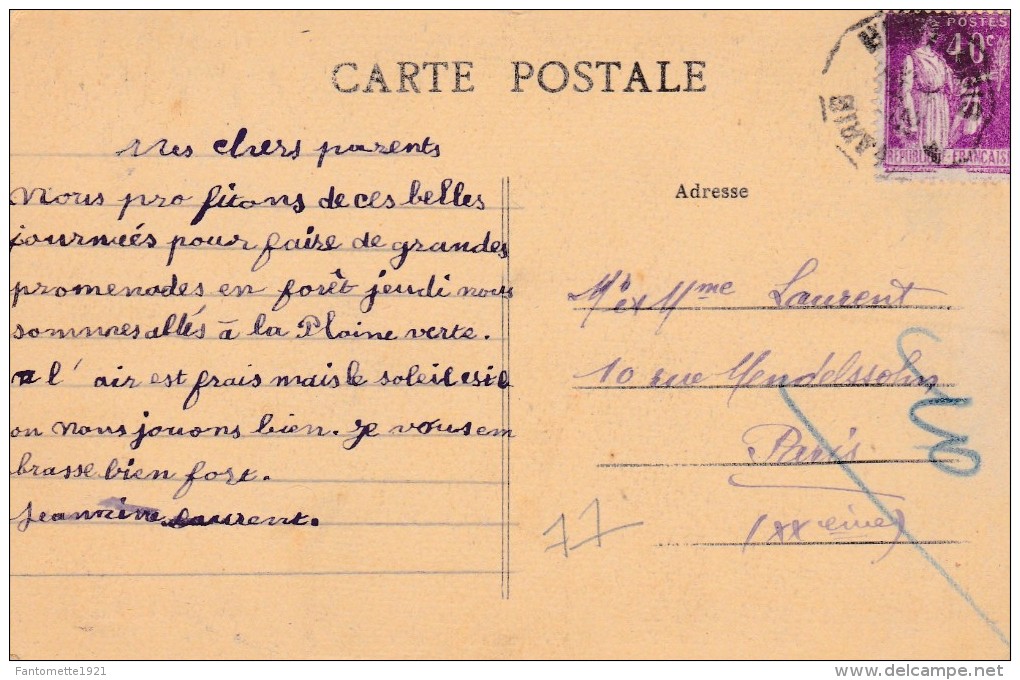 CARTE POSTALE
POSTES
40c
RÉPUBLIQUE FRANÇAISE
PARIS
Mes chers parents
Nous profitons de ces belles
journeés pour faire de grandes
promenades en forêt jeudi nous
sommes allés à la Plaine verte.
l'air est frais mais le soleil est
on nous jouons bien. Je vous em
brasse bien fort.
Jeannine Laurent.
Adresse
Mr et Mme Laurent
10 rue Mendelssohn
Paris
(XXeme)
77
Fantomette1921
www.delcampe.net